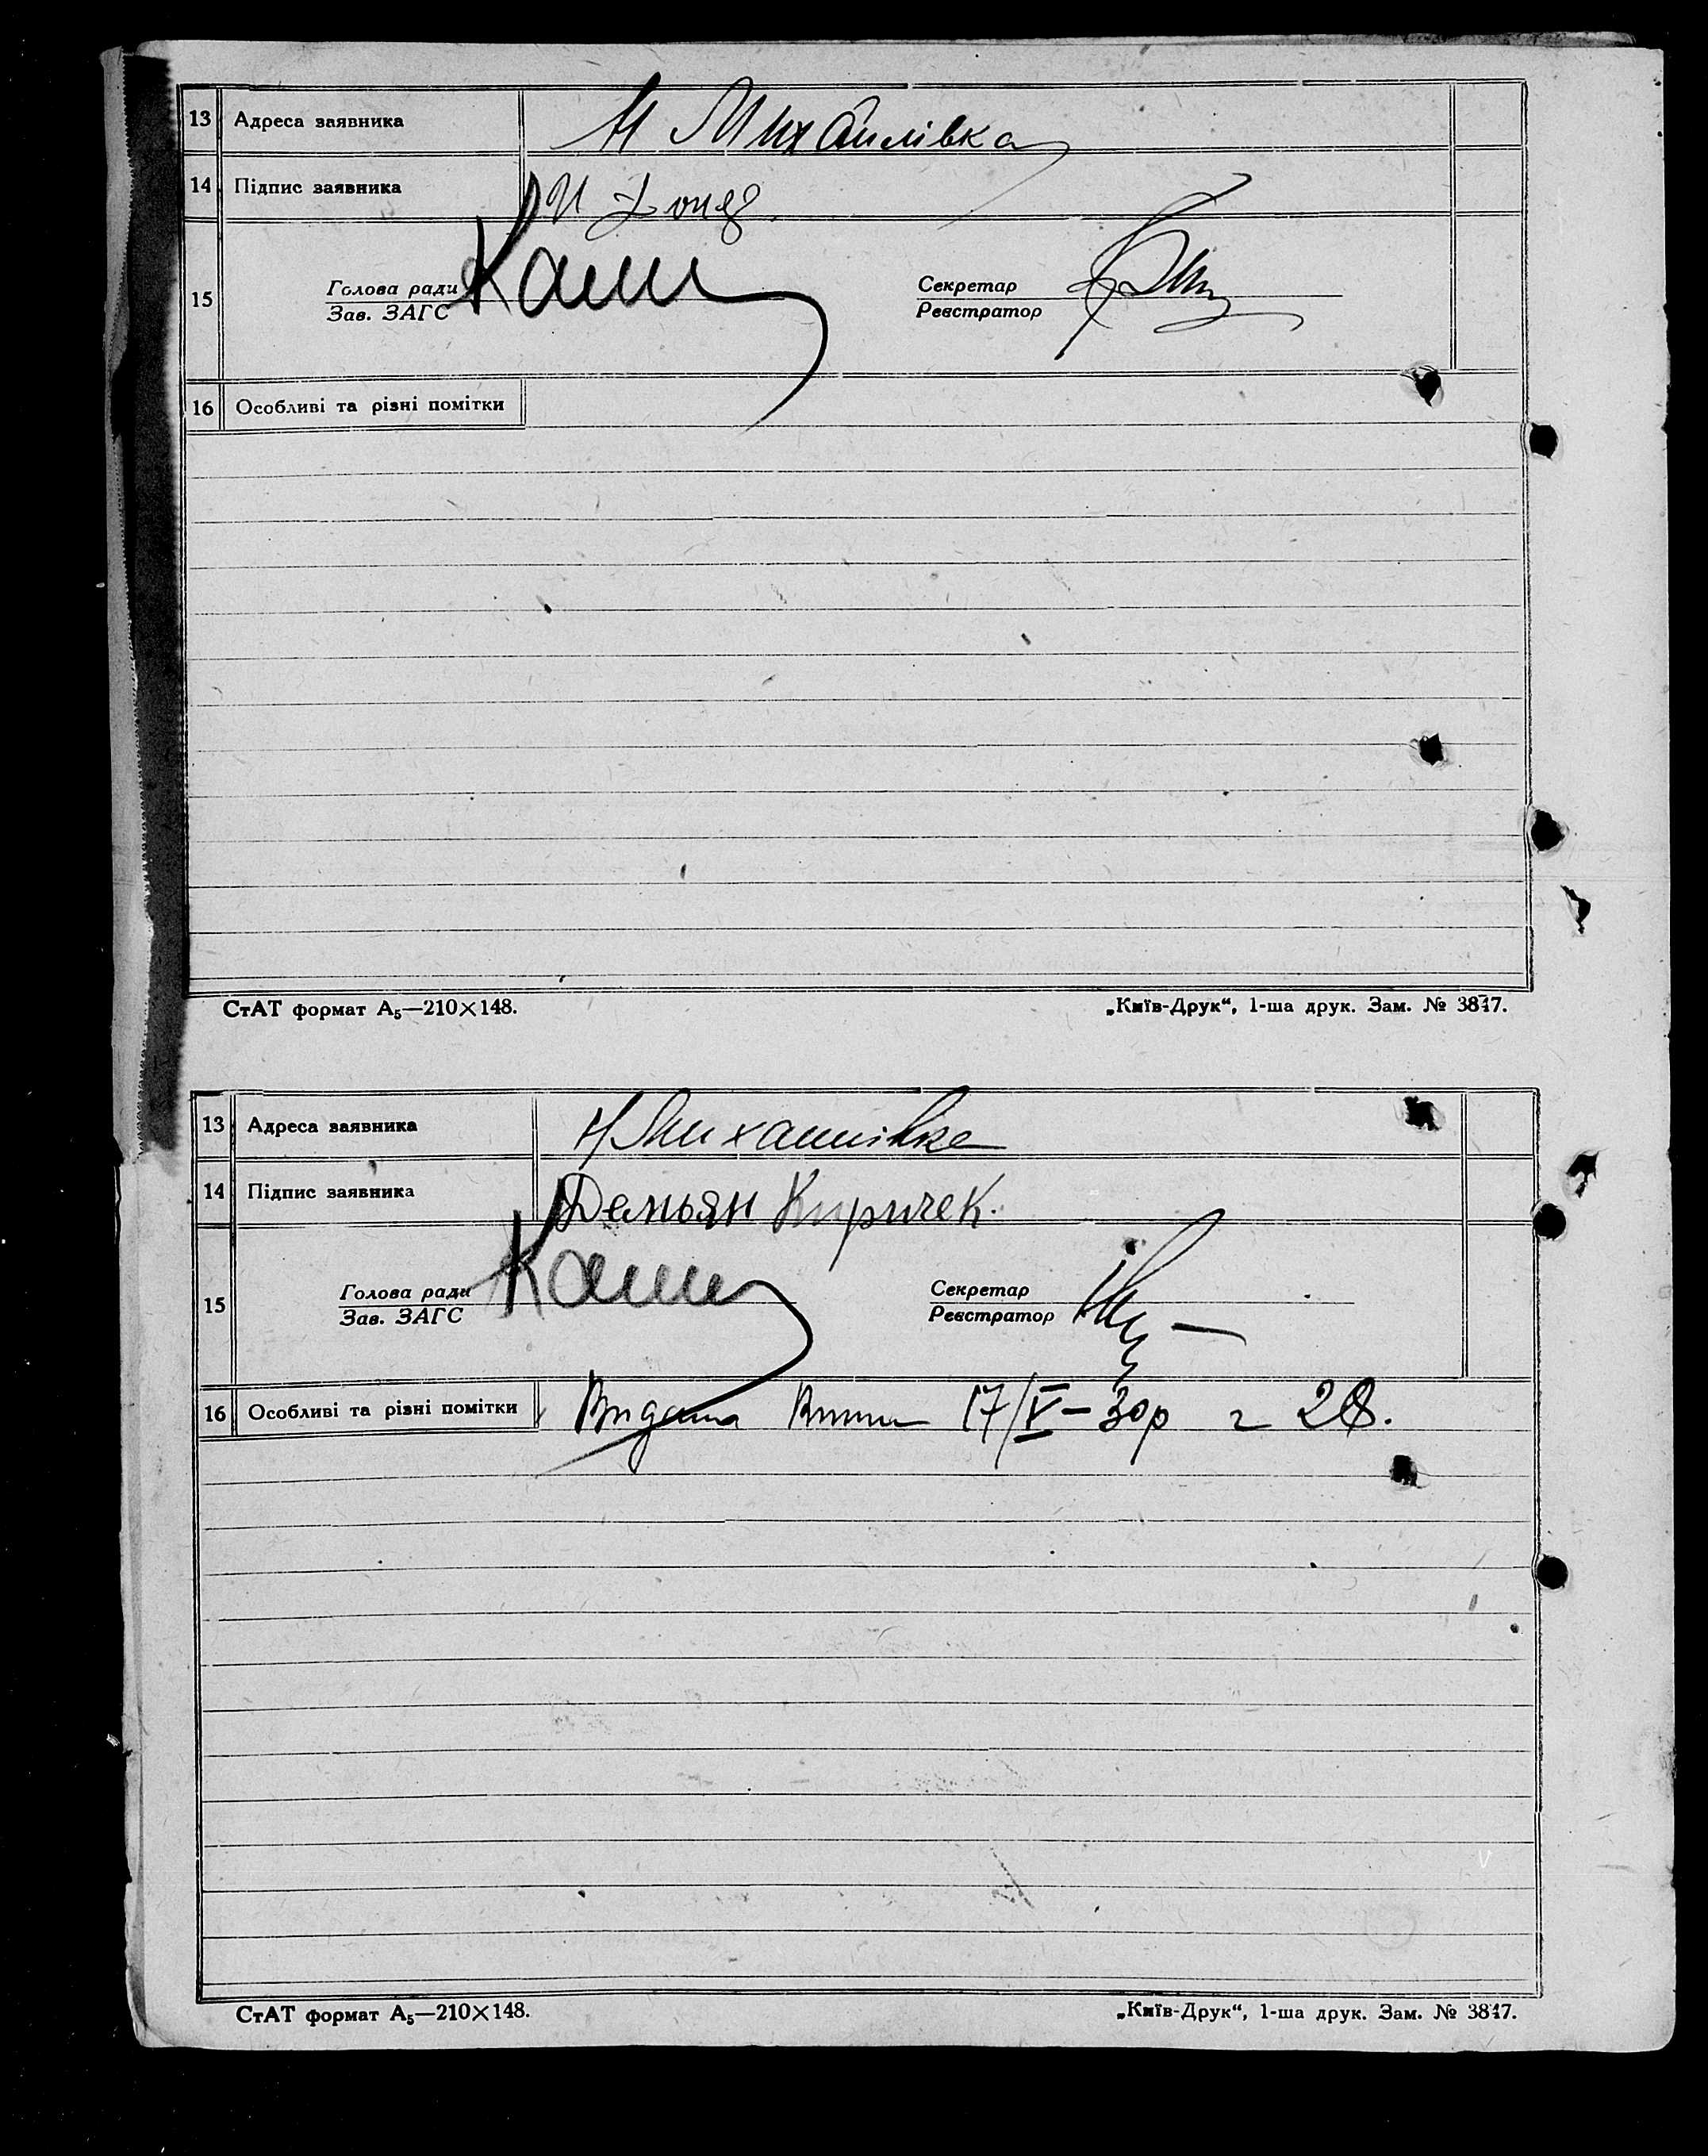 13 Адреса заявника Н Михайлівка
14 Підпис заявника
Голова ради Секретар
15
Зав. ЗАГС Реєстратор
16 Особливі та різні помітки
СтАТ формат А₅—210×148. „Київ-Друк“, 1-ша друк. Зам. № 3847.
13 Адреса заявника Н Михайлівка
14 Підпис заявника Демьян Киричек.
Голова ради Секретар
15
Зав. ЗАГС Реєстратор
16 Особливі та різні помітки Видана 17/V–30р 28.
СтАТ формат А₅—210×148. „Київ-Друк“, 1-ша друк. Зам. № 3847.